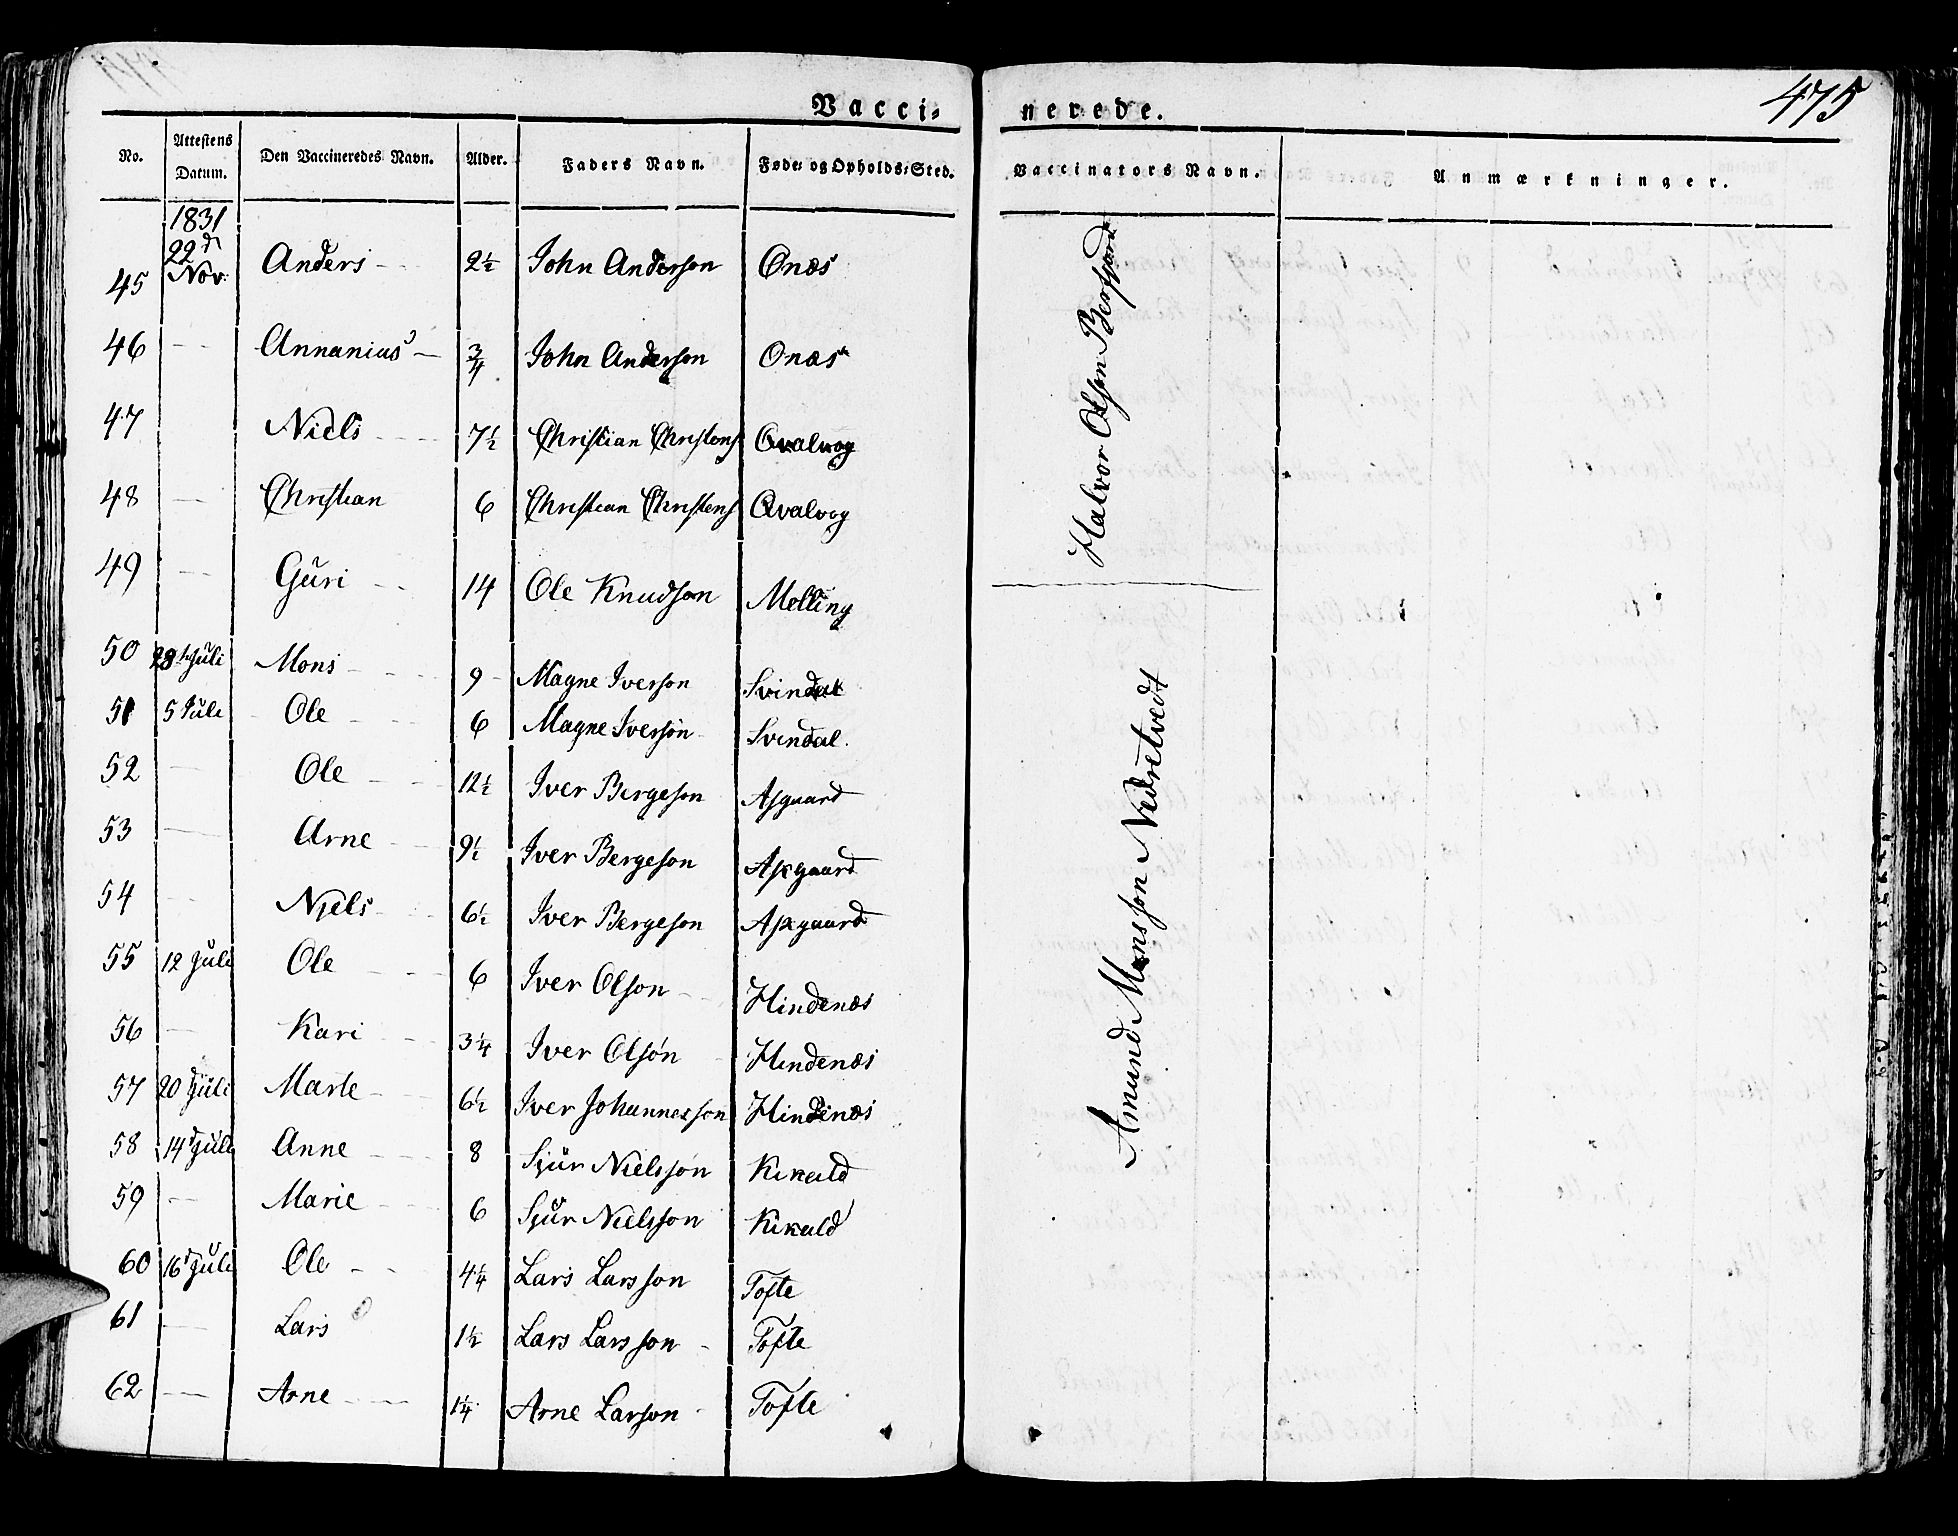 475
Vacci- nerede.
No. Attestens Datum. Den Vaccineredes Navn. Alder. Faders Navn. Føde- og Opholds-Sted. Vaccinators Navn. Anmærkninger.
1831
45 22de Nov: Anders 2½ John Anderson Onæs
46 — Annanias 3/4 John Anderson Onæs
47 Niels 7½ Christian Christens Qvalvog
48 — Christian 6 Christian Christens Qvalvog
49 — Guri 14 Ole Knudson Melling
Halvor Olson Bersgaard
50 28 Juli Mons 9 Magne Iverson Svindal
51 5 Juli Ole 6 Magne Iverson Svindal.
52 — Ole 12½ Iver Bergeson Asgaard
53 — Arne 9½ Iver Bergeson Axgaard
54 — Niels 6½ Iver Bergeson Axgaard
55 12 Juli Ole 6 Iver Olson Hindenæs
56 — Kari 3¼ Iver Olson Hindenæs
57 20d Juli Marte 6½ Iver Johannesson Hindenæs
58 14d Juli Anne 8 Sjur Nielsson Kikald
59 — Marie 6 Sjur Nielsson Kikald
60 16d Juli Ole 4¼ Lars Larsson Tofte
61 — Lars 1½ Lars Larsson Tofte
62 — Arne 1¼ Arne Larson Tofte
Amund Monsson Nedretvedt